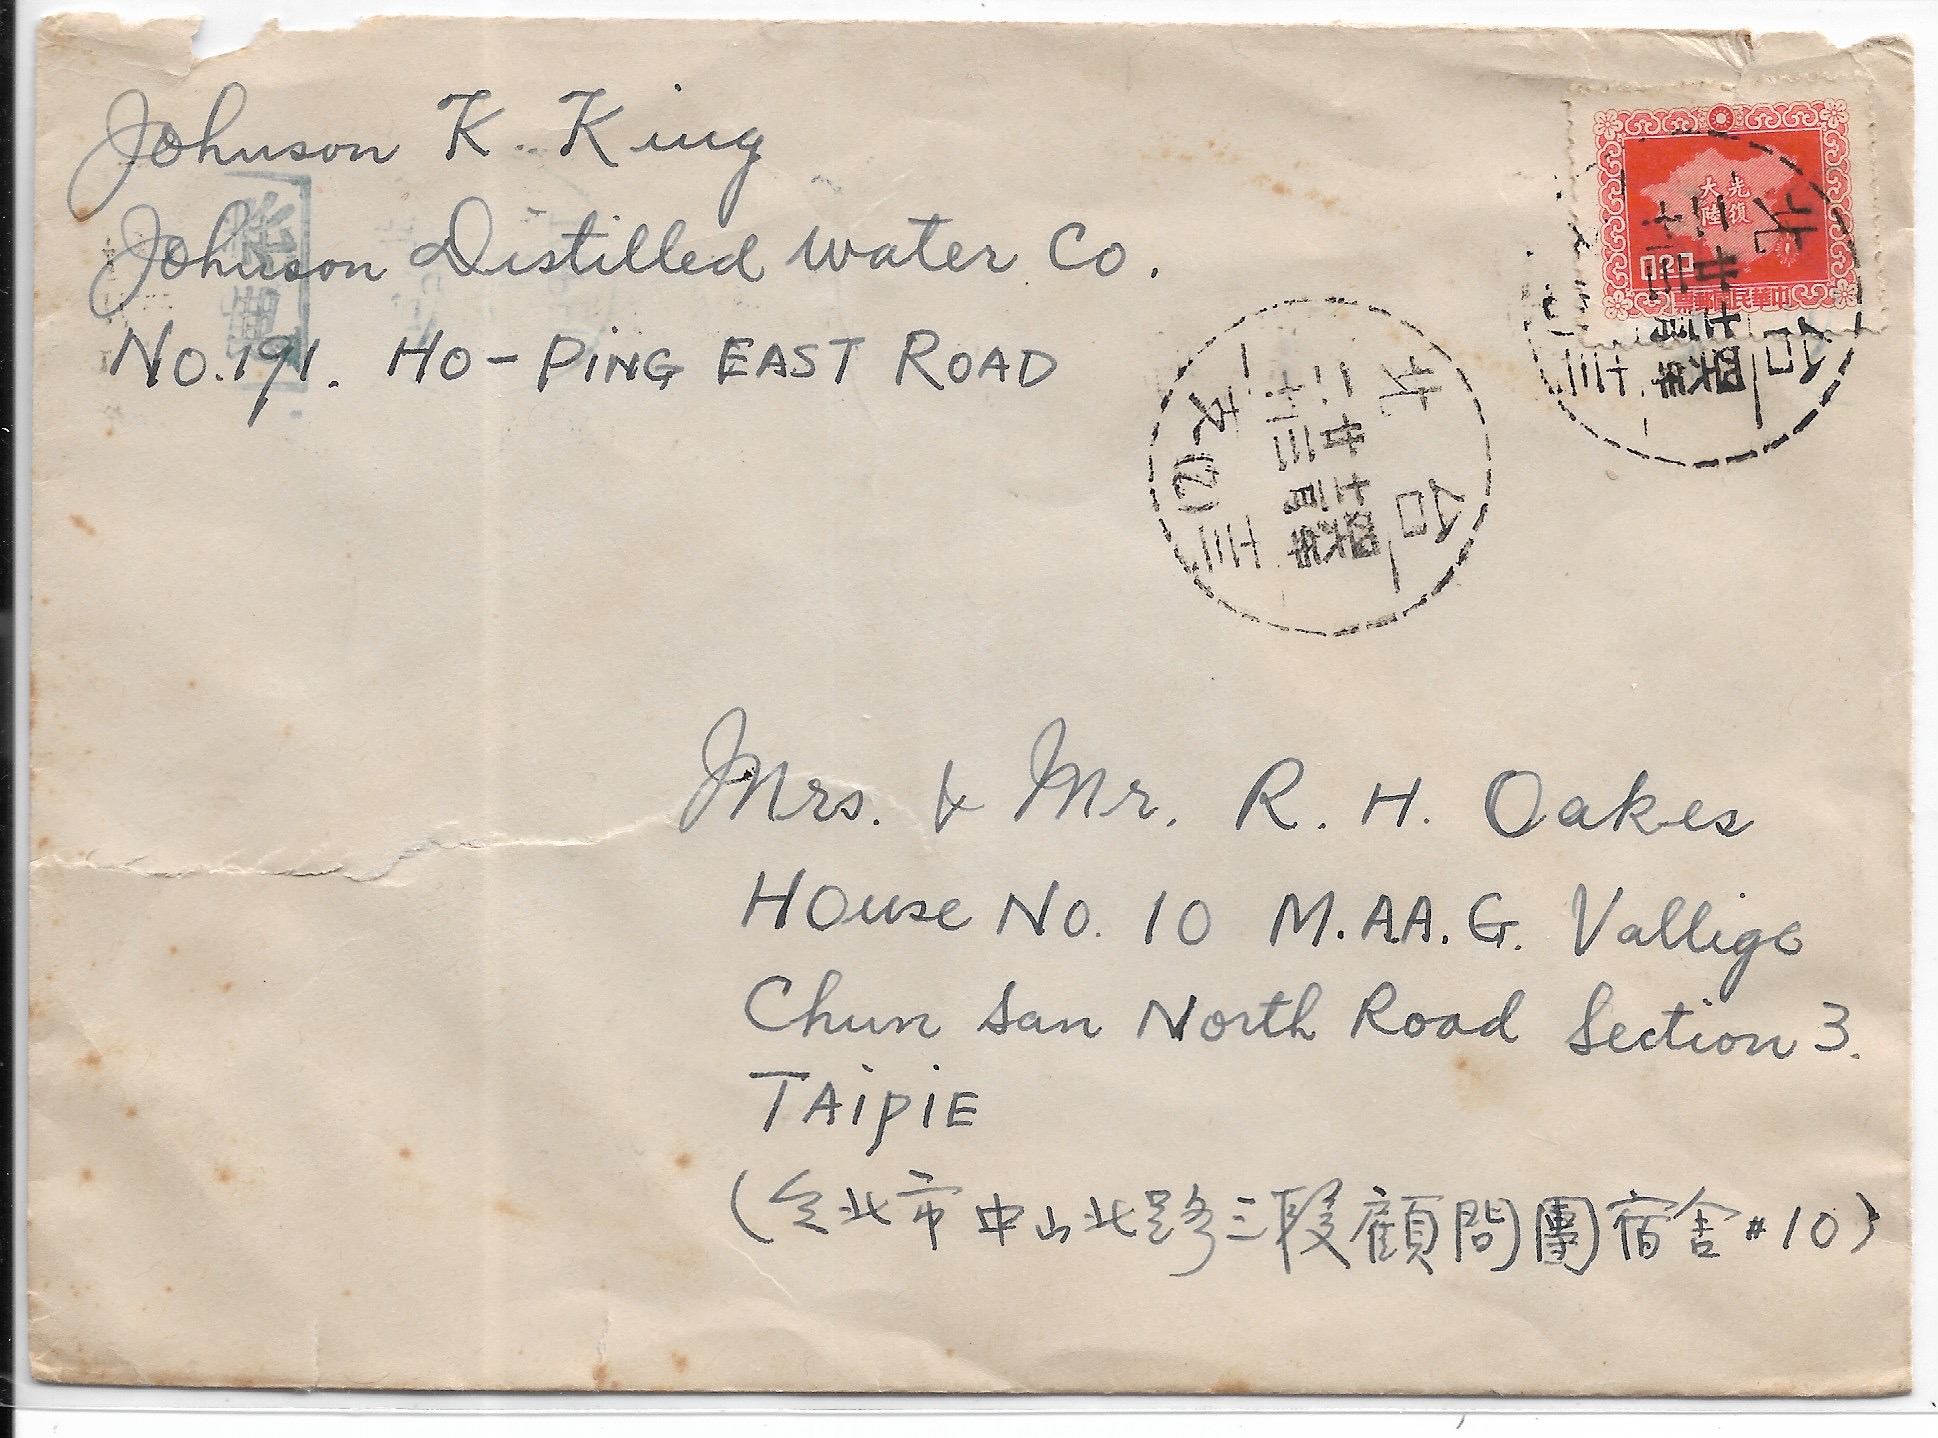 Johnson K. King
Johnson Distilled water Co.
No.191. HO-PiNG EAST ROAD
光復
大陸
1.20
票郵國民華中
北
台
(2)
Mrs. & Mr. R. H. Oakes
House No. 10 M.A.A.G. Vallige
Chun San North Road Section 3.
TAipiE
(台北市中山北路三段顧問團宿舍#10)